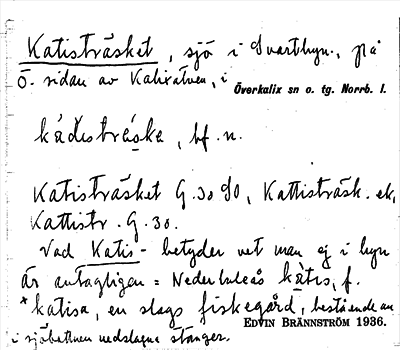 Katisträsket, sjö i Svartbyn, på
Ö. sidan av Kalixälven, i
Överkalix sn o. tg. Norrb. l.
kádistrèske, bf. n.
Katisträsket G. 30 SO, Kattisträsk. ek,
Kattistr. G. 30.
Vad Katis- betyder vet man ej i byn
är antagligen = Nederluleås kàtis, f.
*katisa, en slags fiskegård, bestående av
EDVIN BRÄNNSTRÖM 1936.
i sjöbottnen nedslagna stänger.